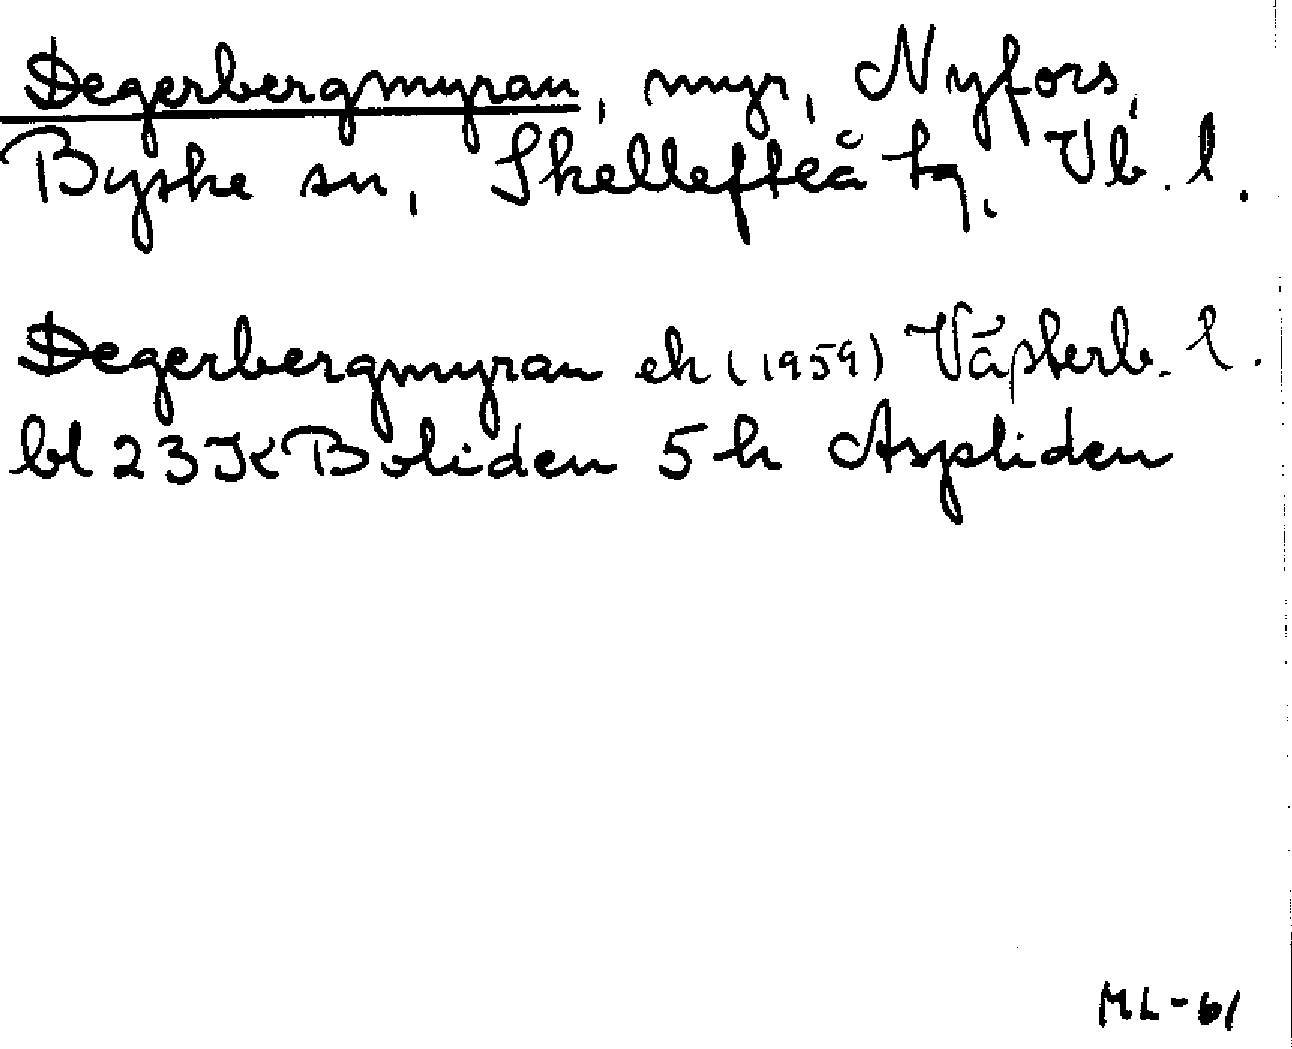 Degerbergmyran, myr, Nyfors,
Byske sn, Skellefteå tg, Vb. l.
Degerbergmyran ek (1959) Västerb. l.
bl 23K Boliden 5h Aspliden
ML-61